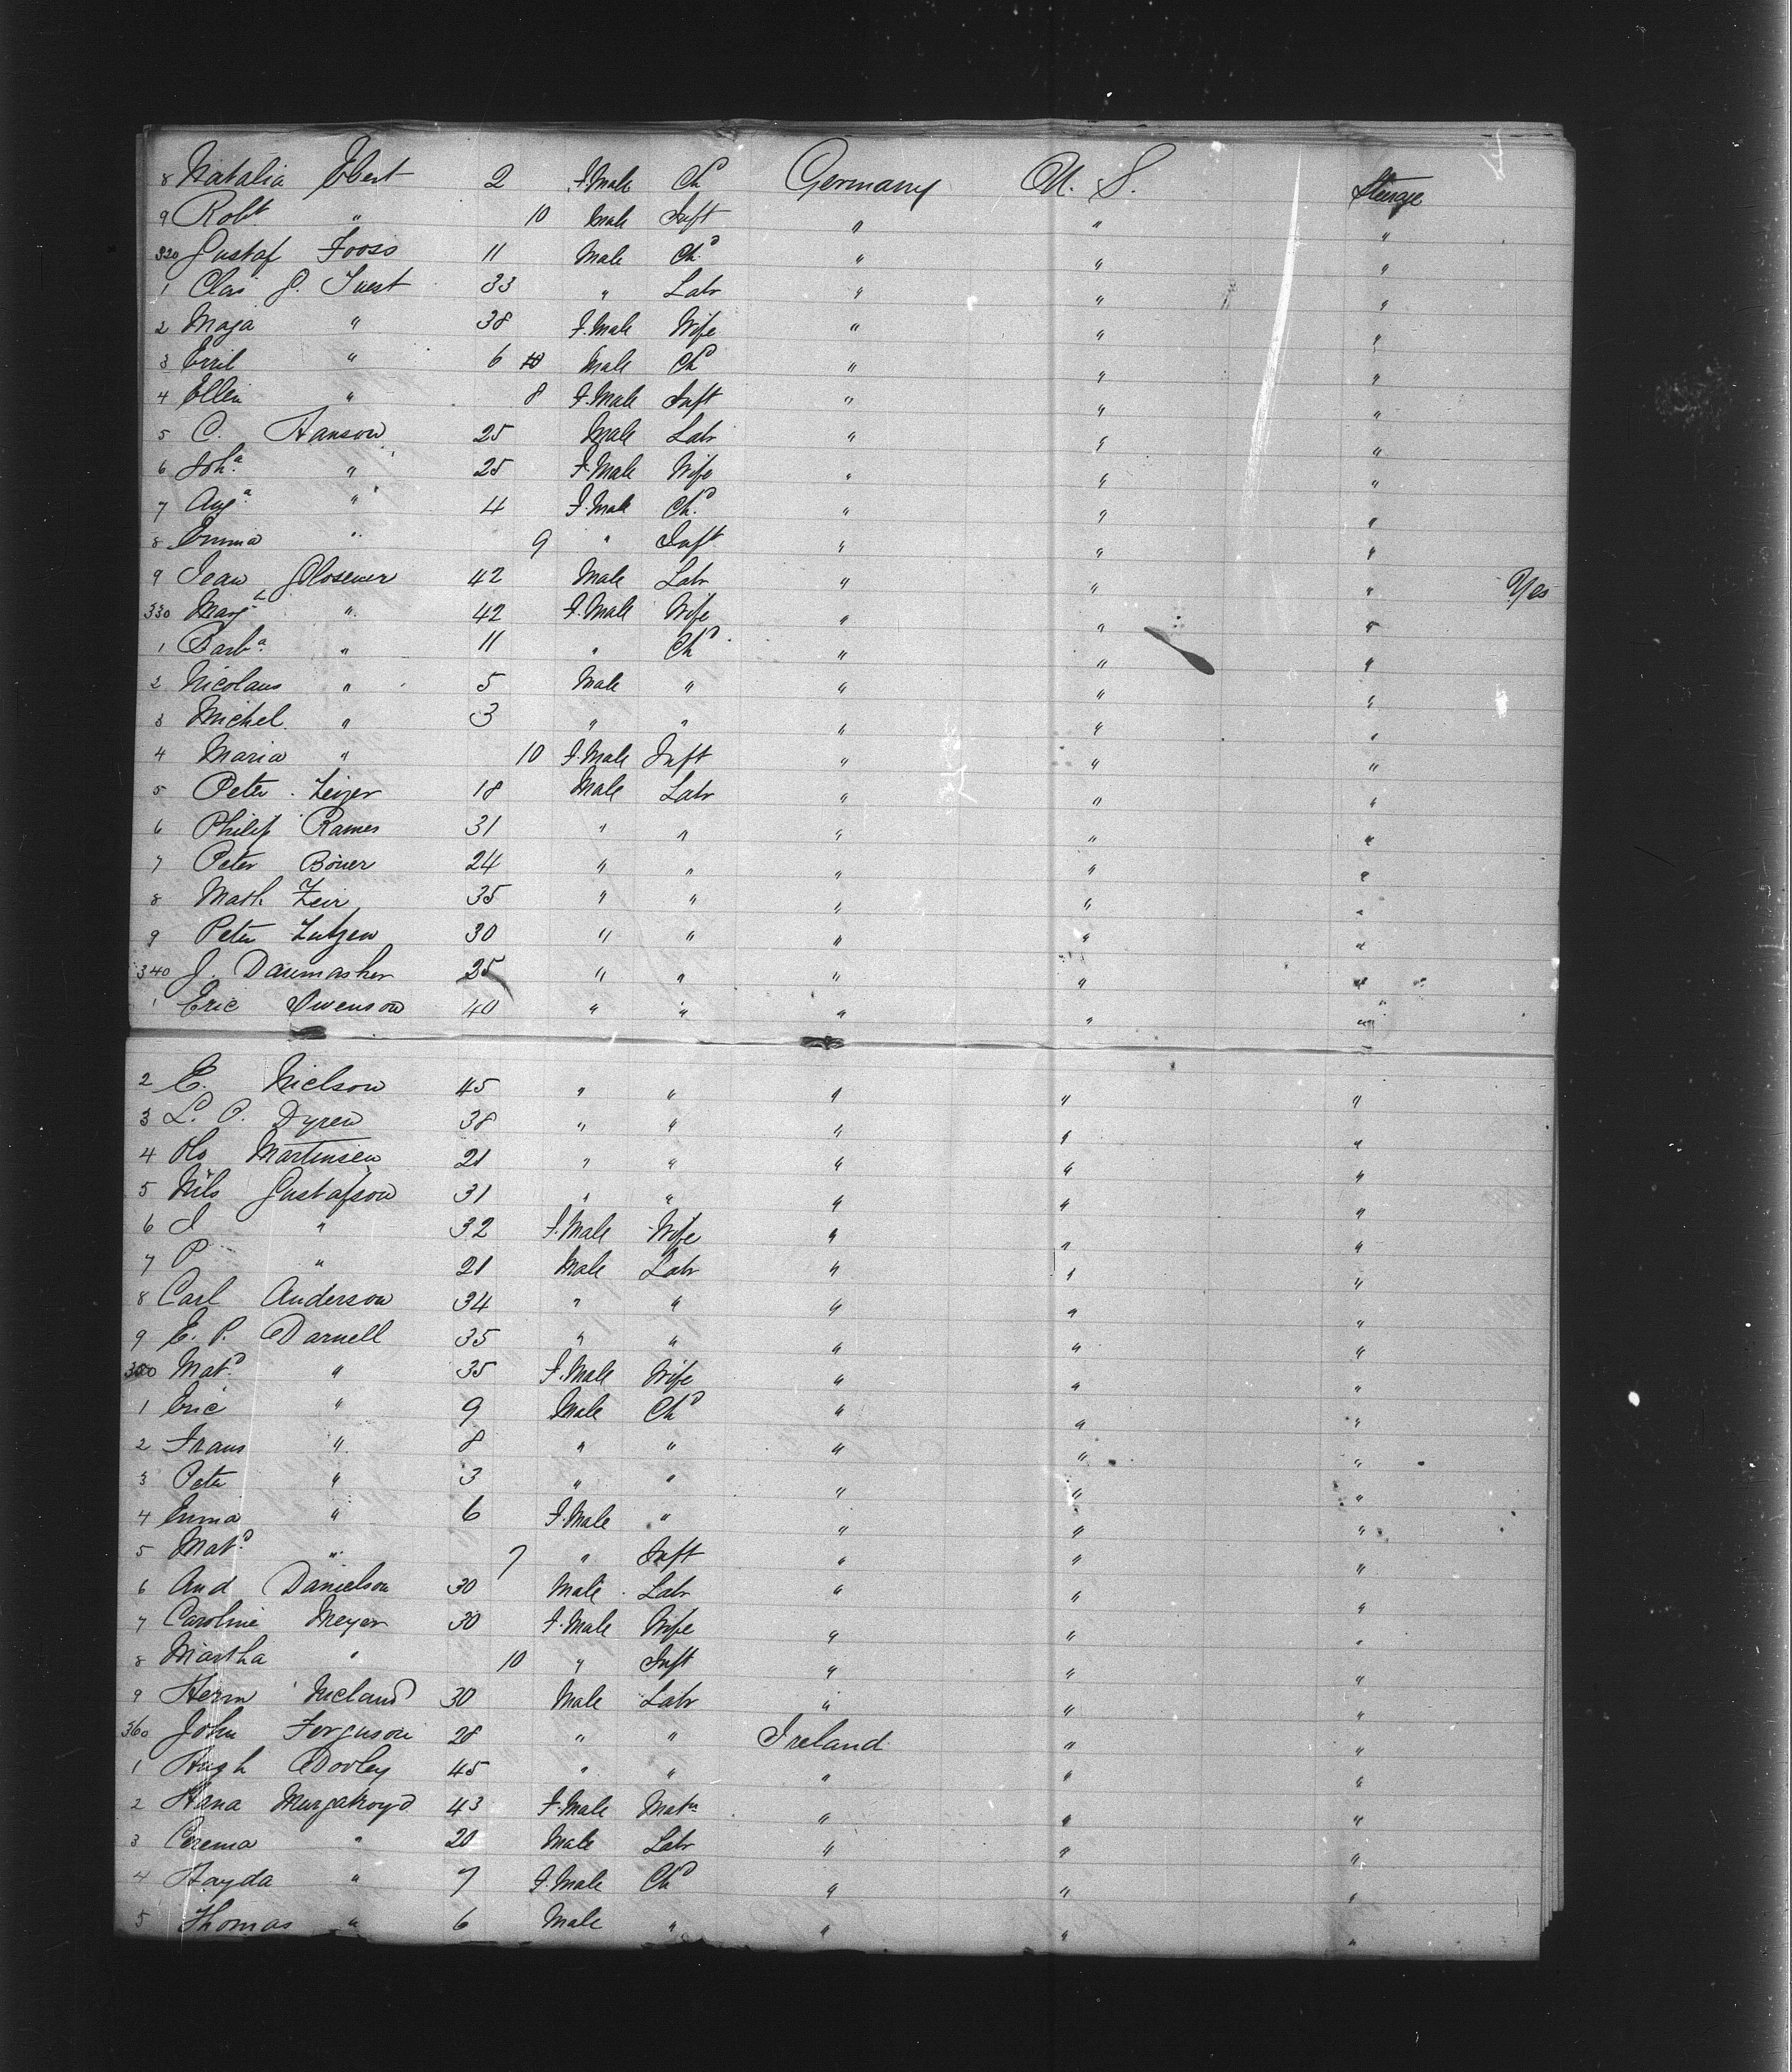 8 Natalia Ebert 2 F.Male Chd Germany U. S. Steerage
9 Robt " 10 Male Inft " " "
320 Gustaf Fooss 11 Male Chd " " "
1 Clas G. Tuest 33 " Labr " " "
2 Maja " 38 F.Male Wife " " "
3 Erril " 6 Male Chd " " "
4 Ellen " 8 F.Male Inft " " "
5 C. Hanson 25 Male Labr " " "
6 Joha " 25 F.Male Wife " " "
7 Auga " 4 F.Male Chd " " "
8 Emma " 9 " Inft " " "
9 Jean Glosener 42 Male Labr " " " Yes
330 Margt " 42 F.Male Wife " " "
1 Barba " 11 " Chd " " "
2 Nicolaus " 5 Male " " " "
3 Michel " 3 " " " " "
4 Maria " 10 F.Male Inft " " "
5 Peter Zeizer 18 Male Labr " " "
6 Philip Rames 31 " " " " "
7 Peter Böner 24 " " " " "
8 Math Zeir 35 " " " " "
9 Peter Lutzen 30 " " " " "
340 J. Daumasher 25 " " " " "
1 Eric Swenson 40 " " " " "
2 E. Nielson 45 " " " " "
3 L. O. Dyren 38 " " " " "
4 Ols Martinsen 21 " " " " "
5 Nils Gustafson 31 " " " " "
6 I " 32 F.Male Wife " " "
7 P " 21 Male Labr " " "
8 Carl Anderson 34 " " " " "
9 E. P. Darnell 35 " " " " "
350 Matd " 35 F.Male Wife " " "
1 Eric " 9 Male Chd " " "
2 Frans " 8 " " " " "
3 Peter " 3 " " " " "
4 Emma " 6 F.Male " " " "
5 Matd " 7 " Inft " " "
6 And Danielson 30 Male Labr " " "
7 Caroline Meyer 30 F.Male Wife " " "
8 Martha " 10 " Inft " " "
9 Herm Nieland 30 Male Labr " " "
360 John Ferguson 28 " " Ireland " "
1 Hugh Dooley 45 " " " " "
2 Hana Murgatroyd 43 F.Male Matn " " "
3 Cerema " 20 Male Labr " " "
4 Hayda " 7 F.Male Chd " " "
5 Thomas " 6 Male " " " "